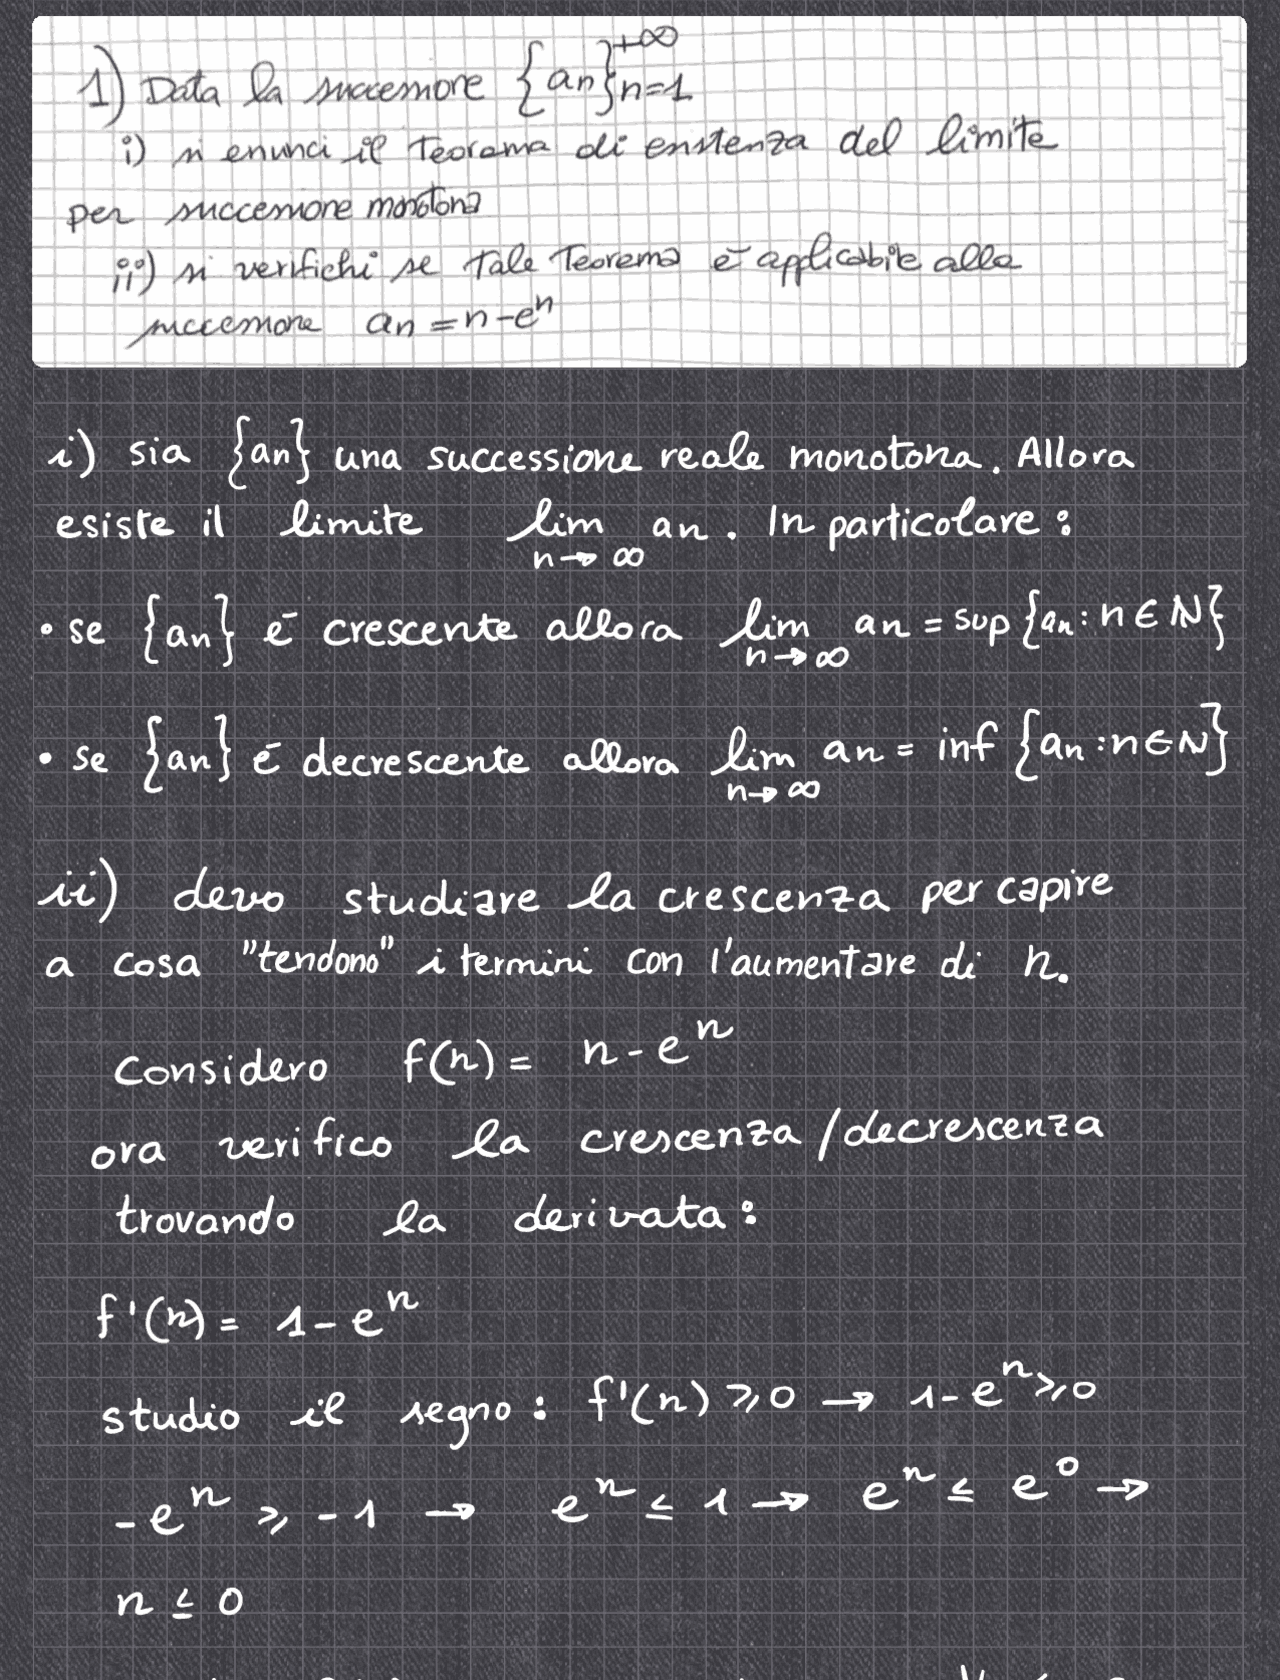 1) Data la successione {an}+∞ n=1
i) si enunci il Teorema di esistenza del limite
per successione monotona
ii) si verifichi se tale Teorema è applicabile alla
successione an = n-eⁿ
i) sia {an} una successione reale monotona. Allora
esiste il limite lim n→∞ an. In particolare:
• se {an} é crescente allora lim n→∞ an = sup {an: n ∈ N}
• se {an} é decrescente allora lim n→∞ an = inf {an: n ∈ N}
ii) devo studiare la crescenza per capire
a cosa "tendono" i termini con l'aumentare di n.
Considero f(n) = n - eⁿ
ora verifico la crescenza/decrescenza
trovando la derivata:
f'(n) = 1 - eⁿ
studio il segno: f'(n) ⩾ 0 → 1 - eⁿ ⩾ 0
-eⁿ ⩾ -1 → eⁿ ≤ 1 → eⁿ ≤ e⁰ →
n ≤ 0